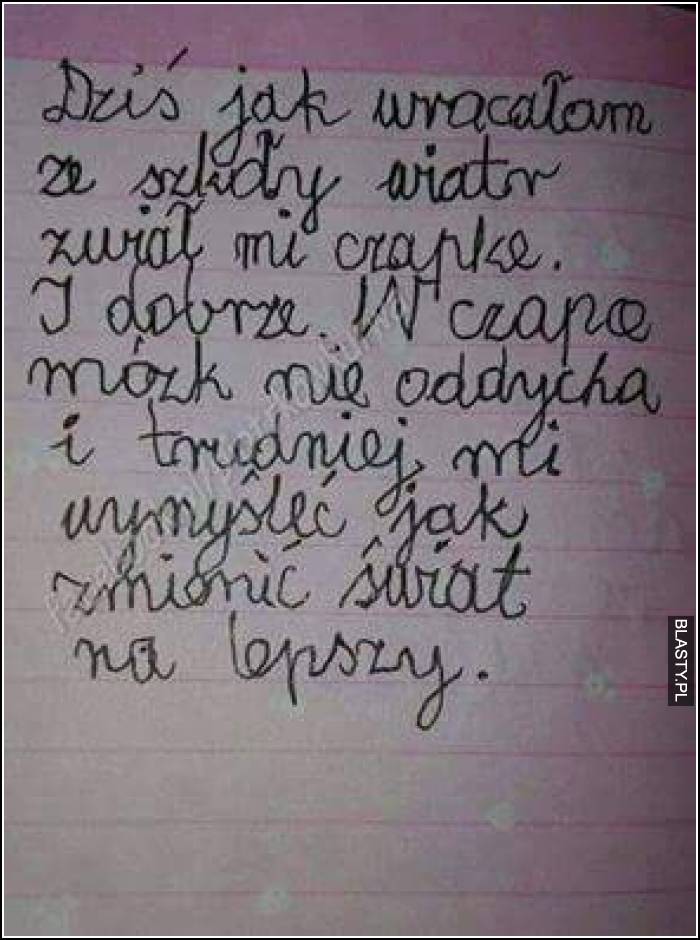 Dziś jak wracałam
ze szkoły wiatr
zwiał mi czapkę.
I dobrze. W czapce
mózk nie oddycha
i trudniej mi
wymyśleć jak
zmienić świat
na lepszy.
BLASTY.PL